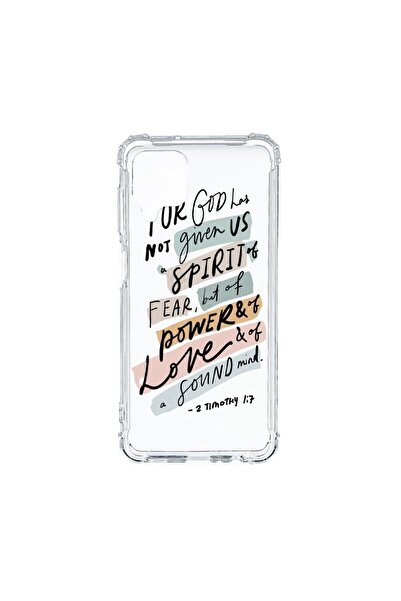 GOD has
NOT given US
a SPIRIT of
FEAR, but of
POWER & of
LOVE & of
a SOUND mind.
- 2 TIMOTHY 1:7